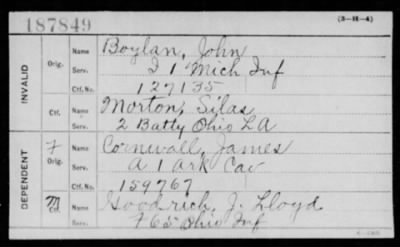 187849 (3-H-4)
INVALID
Orig. Name Boylan, John
Serv. I 1 Mich Inf
Ctf. No. 127135
Ctf. Name Morton, Silas
Serv. 2 Batty Ohio L A
DEPENDENT
F Orig. Name Cornwall, James
Serv. A 1 Ark Cav
Ctf. No. 159767
M Ctf. Name Goodrich, J. Lloyd
Serv. F 65 Ohio Inf